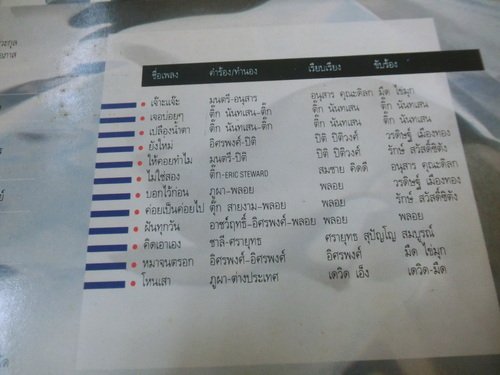 วะกุล
อภาส
ชื่อเพลง คำร้อง/ทำนอง เรียบเรียง ขับร้อง
เจ๊าะแจ๊ะ มนตรี-อนุสาร อนุสาร คุณะดิลก มืด ไข่มุก
เจอบ่อยๆ ติ๊ก นันทเสน-ติ๊ก ติ๊ก นันทเสน ติ๊ก นันทเสน
เปลืองน้ำตา ติ๊ก นันทเสน-ติ๊ก ติ๊ก นันทเสน ติ๊ก นันทเสน
ยังไหม่ อิศรพงศ์-ปิติ ปิติ ปิติวงศ์ วรดิษฐ์ เมืองทอง
ให้คอยทำไม มนตรี-ปิติ ปิติ ปิติวงศ์ รักษ์ สวัสดิ์ชิตัง
ไม่ใช่สอง ติ๊ก-ERIC STEWARD สมชาย คิดดี อนุสาร คุณะดิลก
บอกไว้ก่อน ภูผา-พลอย พลอย วรดิษฐ์ เมืองทอง
ค่อยเป็นค่อยไป ตุ๊ก สายงาม-พลอย พลอย รักษ์ สวัสดิ์ชิตัง
ฝันทุกวัน อาชว์ฤทธิ์-อิศรพงศ์-พลอย พลอย พลอย
คิดเอาเอง ชาลี-ศรายุทธ ศรายุทธ สุปัญโญ สมบูรณ์
หมาจนตรอก อิศรพงศ์-อิศรพงศ์ อิศรพงศ์ มืด ไข่มุก
โหนเสา ภูผา-ต่างประเทศ เดวิด เอ็ง เดวิด-มืด